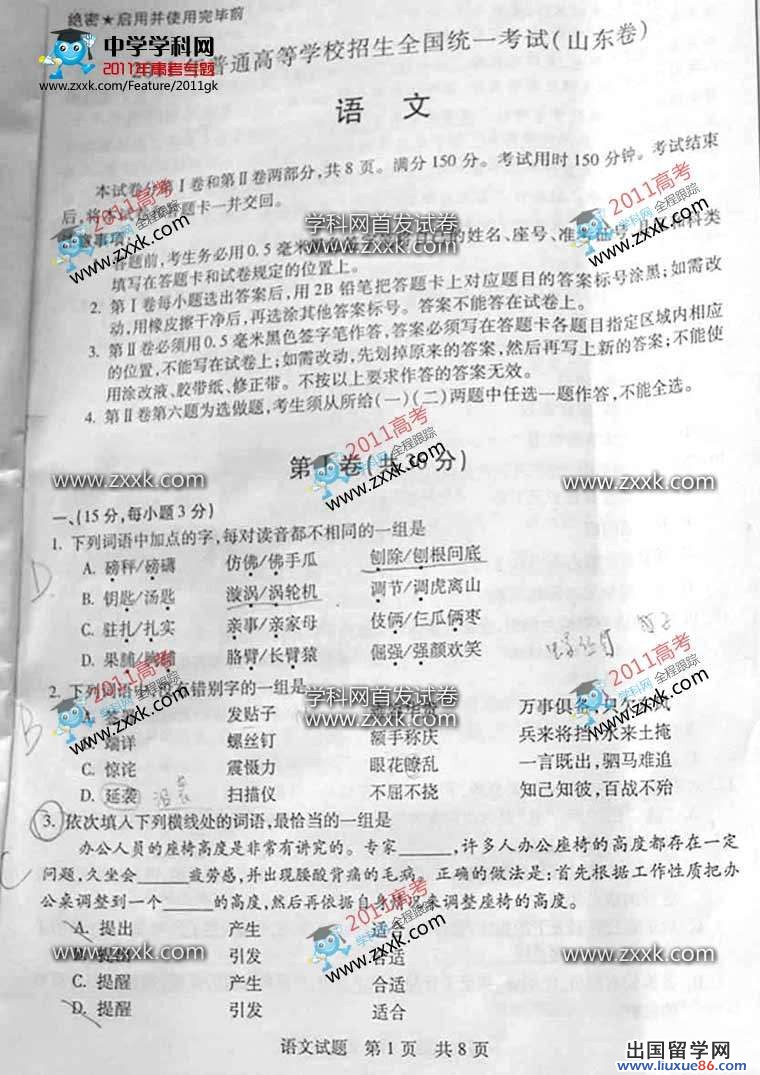 绝密★启用并使用完毕前
中学学科网
2011年高考专题
www.zxxk.com/Feature/2011gk
普通高等学校招生全国统一考试(山东卷)
语 文
本试卷分第Ⅰ卷和第Ⅱ卷两部分,共8页。满分150分。考试用时150分钟。考试结束
后,将 答题卡一并交回。
2011高考
学科网 全程跟踪
zxxk.com
学科网首发试卷
www.zxxk.com
2011高考
学科网 全程跟踪
zxxk.com
注意事项:
答题前,考生务必用0.5毫米 的姓名、座号、准考证号、 科类
填写在答题卡和试卷规定的位置上。
2. 第Ⅰ卷每小题选出答案后,用2B铅笔把答题卡上对应题目的答案标号涂黑;如需改
动,用橡皮擦干净后,再选涂其他答案标号。答案不能答在试卷上。
3. 第Ⅱ卷必须用0.5毫米黑色签字笔作答,答案必须写在答题卡各题目指定区域内相应
的位置,不能写在试卷上;如需改动,先划掉原来的答案,然后再写上新的答案;不能使
用涂改液、胶带纸、修正带。不按以上要求作答的答案无效。
4. 第Ⅱ卷第六题为选做题,考生须从所给(一)(二)两题中任选一题作答,不能全选。
2011高考
学科网 全程跟踪
www.zxxk.com
第Ⅰ卷(共36分)
www.zxxk.com
www.zxxk.com
一、(15分,每小题3分)
1. 下列词语中加点的字,每对读音都不相同的一组是
D.
A. 磅秤/磅礴 仿佛/佛手瓜 刨除/刨根问底
B. 钥匙/汤匙 漩涡/涡轮机 调节/调虎离山
C. 驻扎/扎实 亲事/亲家母 伎俩/仨瓜俩枣
D. 果脯/胸脯 胳臂/长臂猿 倔强/强颜欢笑
2011高考
学科网 全程跟踪
zxxk.com
学科网首发试卷
www.zxxk.com
2011高考
学科网 全程跟踪
zxxk.com
2. 下列词语中,没有错别字的一组是
B
A. 发贴子 万事俱备,只欠东风
B. 端详 螺丝钉 额手称庆 兵来将挡,水来土掩
C. 惊诧 震慑力 眼花瞭乱 一言既出,驷马难追
D. 延袭 沿袭 扫描仪 不屈不挠 知己知彼,百战不殆
3. 依次填入下列横线处的词语,最恰当的一组是
C
办公人员的座椅高度是非常有讲究的。专家______,许多人办公座椅的高度都存在一定
问题,久坐会______疲劳感,并出现腰酸背痛的毛病。正确的做法是:首先根据工作性质把办
公桌调整到一个______的高度,然后再依据自身情况来调整座椅的高度。
2011高考
学科网 全程跟踪
www.zxxk.com
A. 提出 产生 适合
B. 提出 引发 合适
www.zxxk.com
www.zxxk.com
C. 提醒 产生 合适
D. 提醒 引发 适合
语文试题 第1页 共8页
出国留学网
www.liuxue86.com